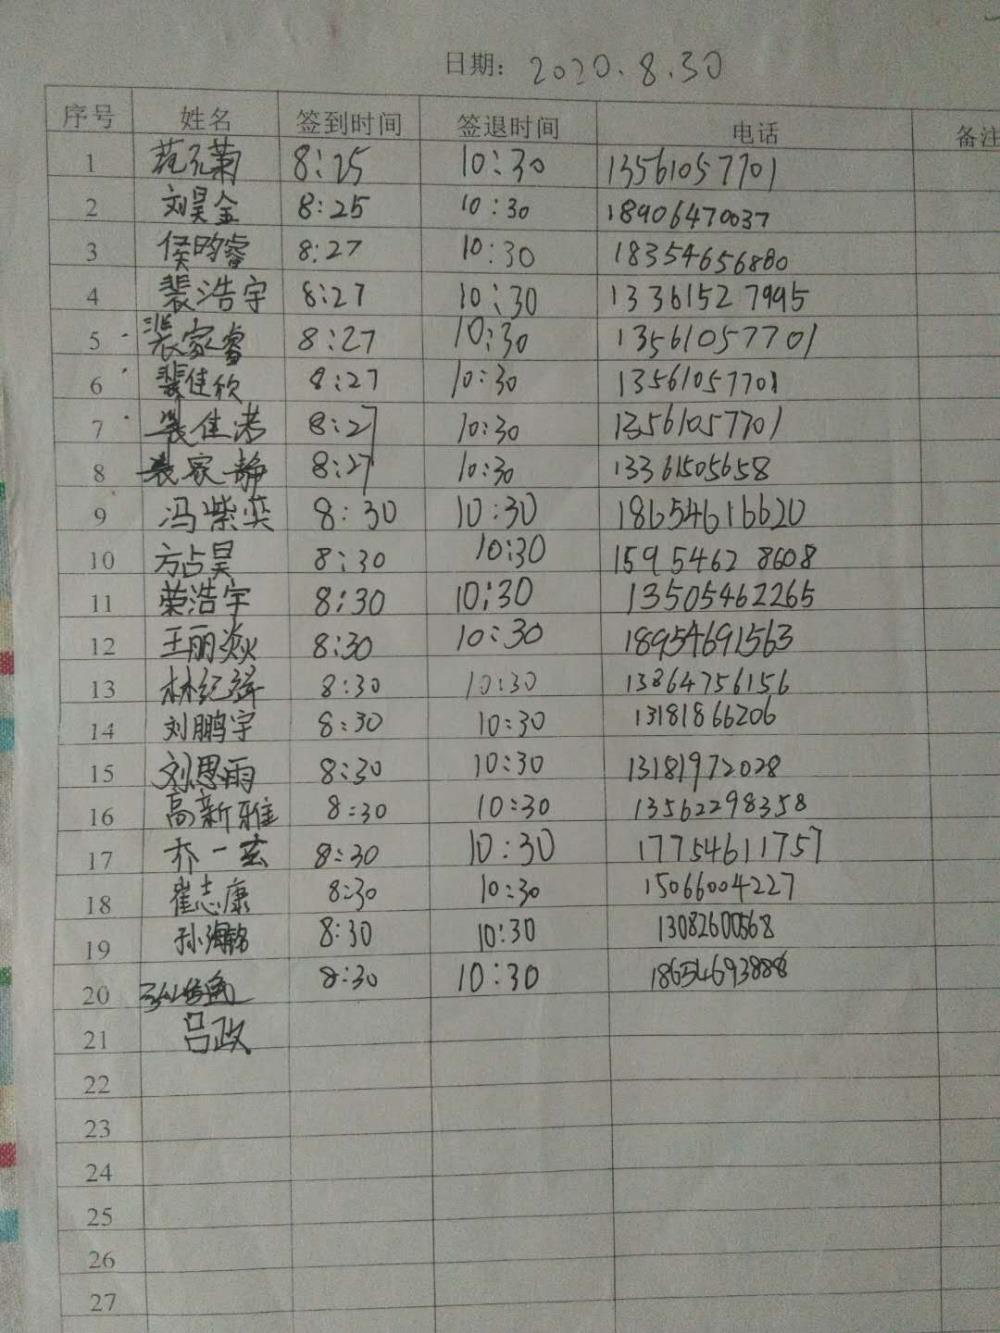 日期: 2020.8.30
序号 姓名 签到时间 签退时间 电话 备注
1 范元菊 8:25 10:30 13561057701
2 刘昊金 8:25 10:30 18906470037
3 侯昀睿 8:27 10:30 18354656880
4 裴浩宇 8:27 10:30 13361527995
5 裴家睿 8:27 10:30 13561057701
6 裴佳欣 8:27 10:30 13561057701
7 裴佳诺 8:27 10:30 13561057701
8 裴家静 8:27 10:30 13361505658
9 冯紫奕 8:30 10:30 18654616620
10 方占昊 8:30 10:30 15954628608
11 荣浩宇 8:30 10:30 13505462265
12 王丽焱 8:30 10:30 18954691563
13 林纪锋 8:30 10:30 13864756156
14 刘鹏宇 8:30 10:30 13181866206
15 刘思雨 8:30 10:30 13181972028
16 高新雅 8:30 10:30 13562298358
17 乔一玄 8:30 10:30 17754611757
18 崔志康 8:30 10:30 15066004227
19 孙海铭 8:30 10:30 13082600568
20 8:30 10:30 18654693888
21 吕政
22
23
24
25
26
27